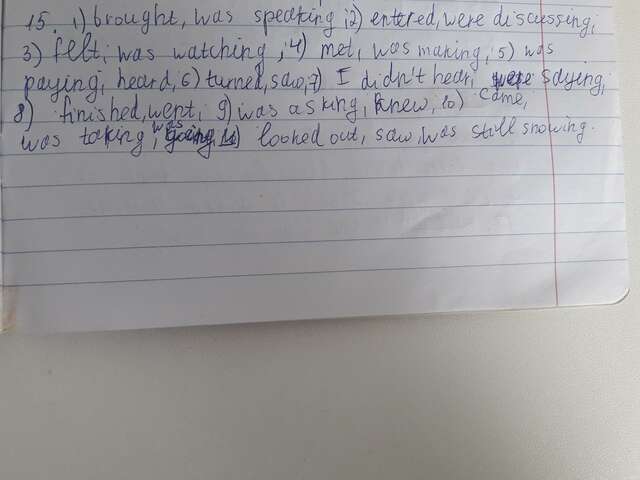 15. 1) brought, was speaking; 2) entered, were discussing;
3) felt, was watching; 4) met, was making; 5) was
paying, heard, 6) turned, saw, 7) I didn't hear, were saying;
8) finished, went; 9) was asking, knew, 10) came,
was taking, was going, 11) looked out, saw, was still snowing.